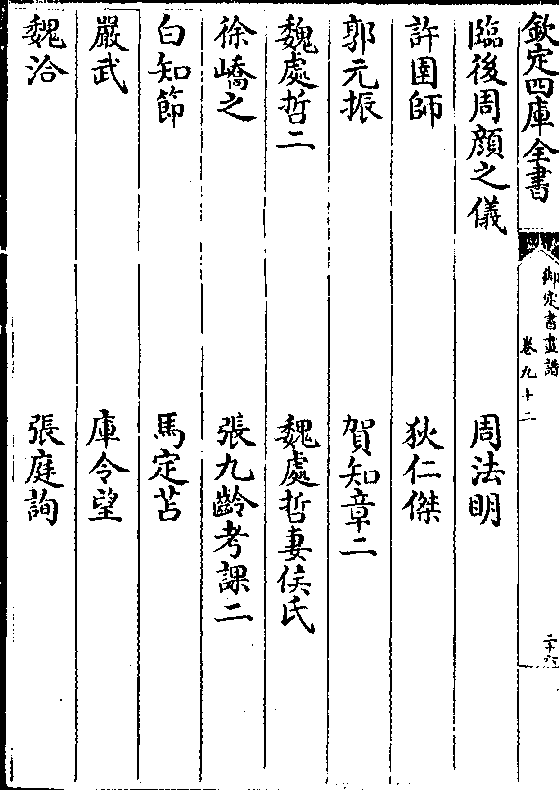 欽定四庫全書
御定書畫譜
卷九十二
二十六
臨後周顔之儀
周法明
許圉師
狄仁傑
郭元振
賀知章二
魏處哲二
魏處哲妻侯氏
徐嶠之
張九齡考課二
白知節
馬定苔
嚴武
庫令望
魏洽
張庭詢